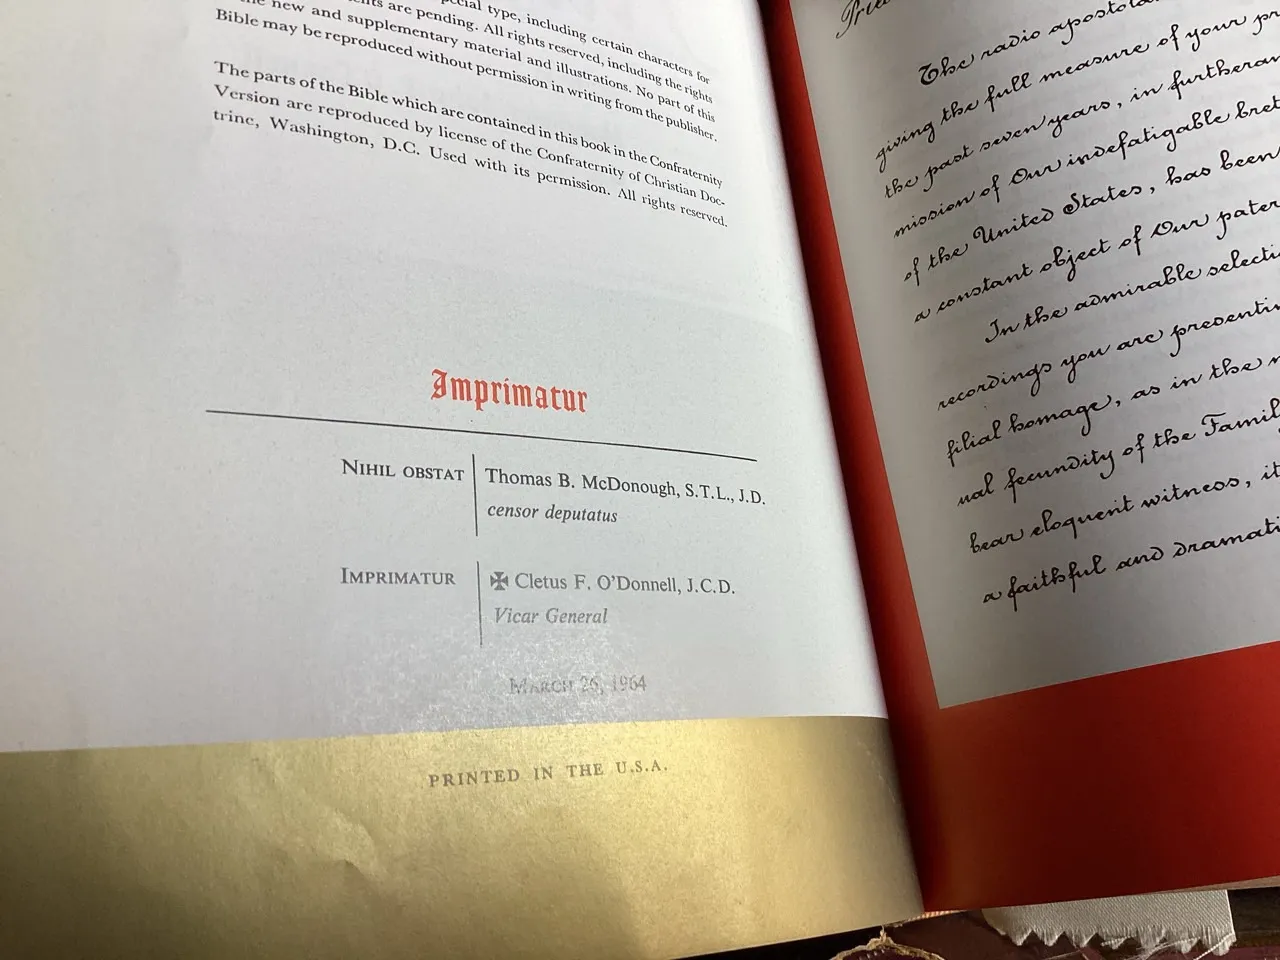 cial type, including certain characters for
nts are pending. All rights reserved, including the rights
new and supplementary material and illustrations. No part of this
Bible may be reproduced without permission in writing from the publisher.
The parts of the Bible which are contained in this book in the Confraternity
Version are reproduced by license of the Confraternity of Christian Doc-
trine, Washington, D.C. Used with its permission. All rights reserved.
Imprimatur
NIHIL OBSTAT Thomas B. McDonough, S.T.L., J.D.
censor deputatus
IMPRIMATUR ✠ Cletus F. O'Donnell, J.C.D.
Vicar General
MARCH 26, 1964
PRINTED IN THE U.S.A.
The radio apostola
giving the full measure of your pr
the past seven years, in furtheran
mission of Our indefatigable bret
of the United States, has been
a constant object of Our pater
In the admirable selecti
recordings you are presentin
filial homage, as in the
nal fecundity of the Famil
bear eloquent witness, it
a faithful and dramati